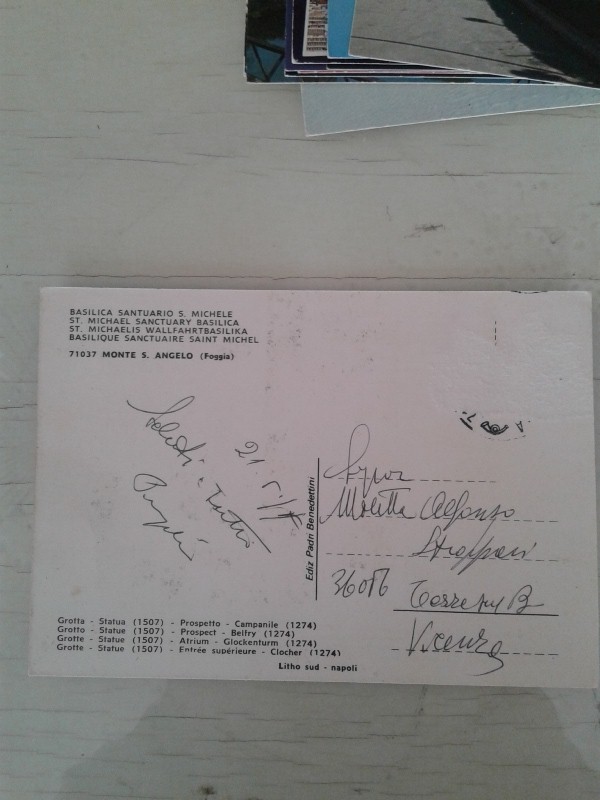 BASILICA SANTUARIO S. MICHELE
ST. MICHAEL SANCTUARY BASILICA
ST. MICHAELIS WALLFAHRTBASILIKA
BASILIQUE SANCTUAIRE SAINT MICHEL
71037 MONTE S. ANGELO (Foggia)
Saluti a tutti
Ediz Padri Benedettini
Alfonso
36016
Vicenza
Grotta - Statua (1507) - Prospetto - Campanile (1274)
Grotto - Statue (1507) - Prospect - Belfry (1274)
Grotte - Statue (1507) - Atrium - Glockenturm (1274)
Grotte - Statue (1507) - Entrée supérieure - Clocher (1274)
Litho sud - napoli